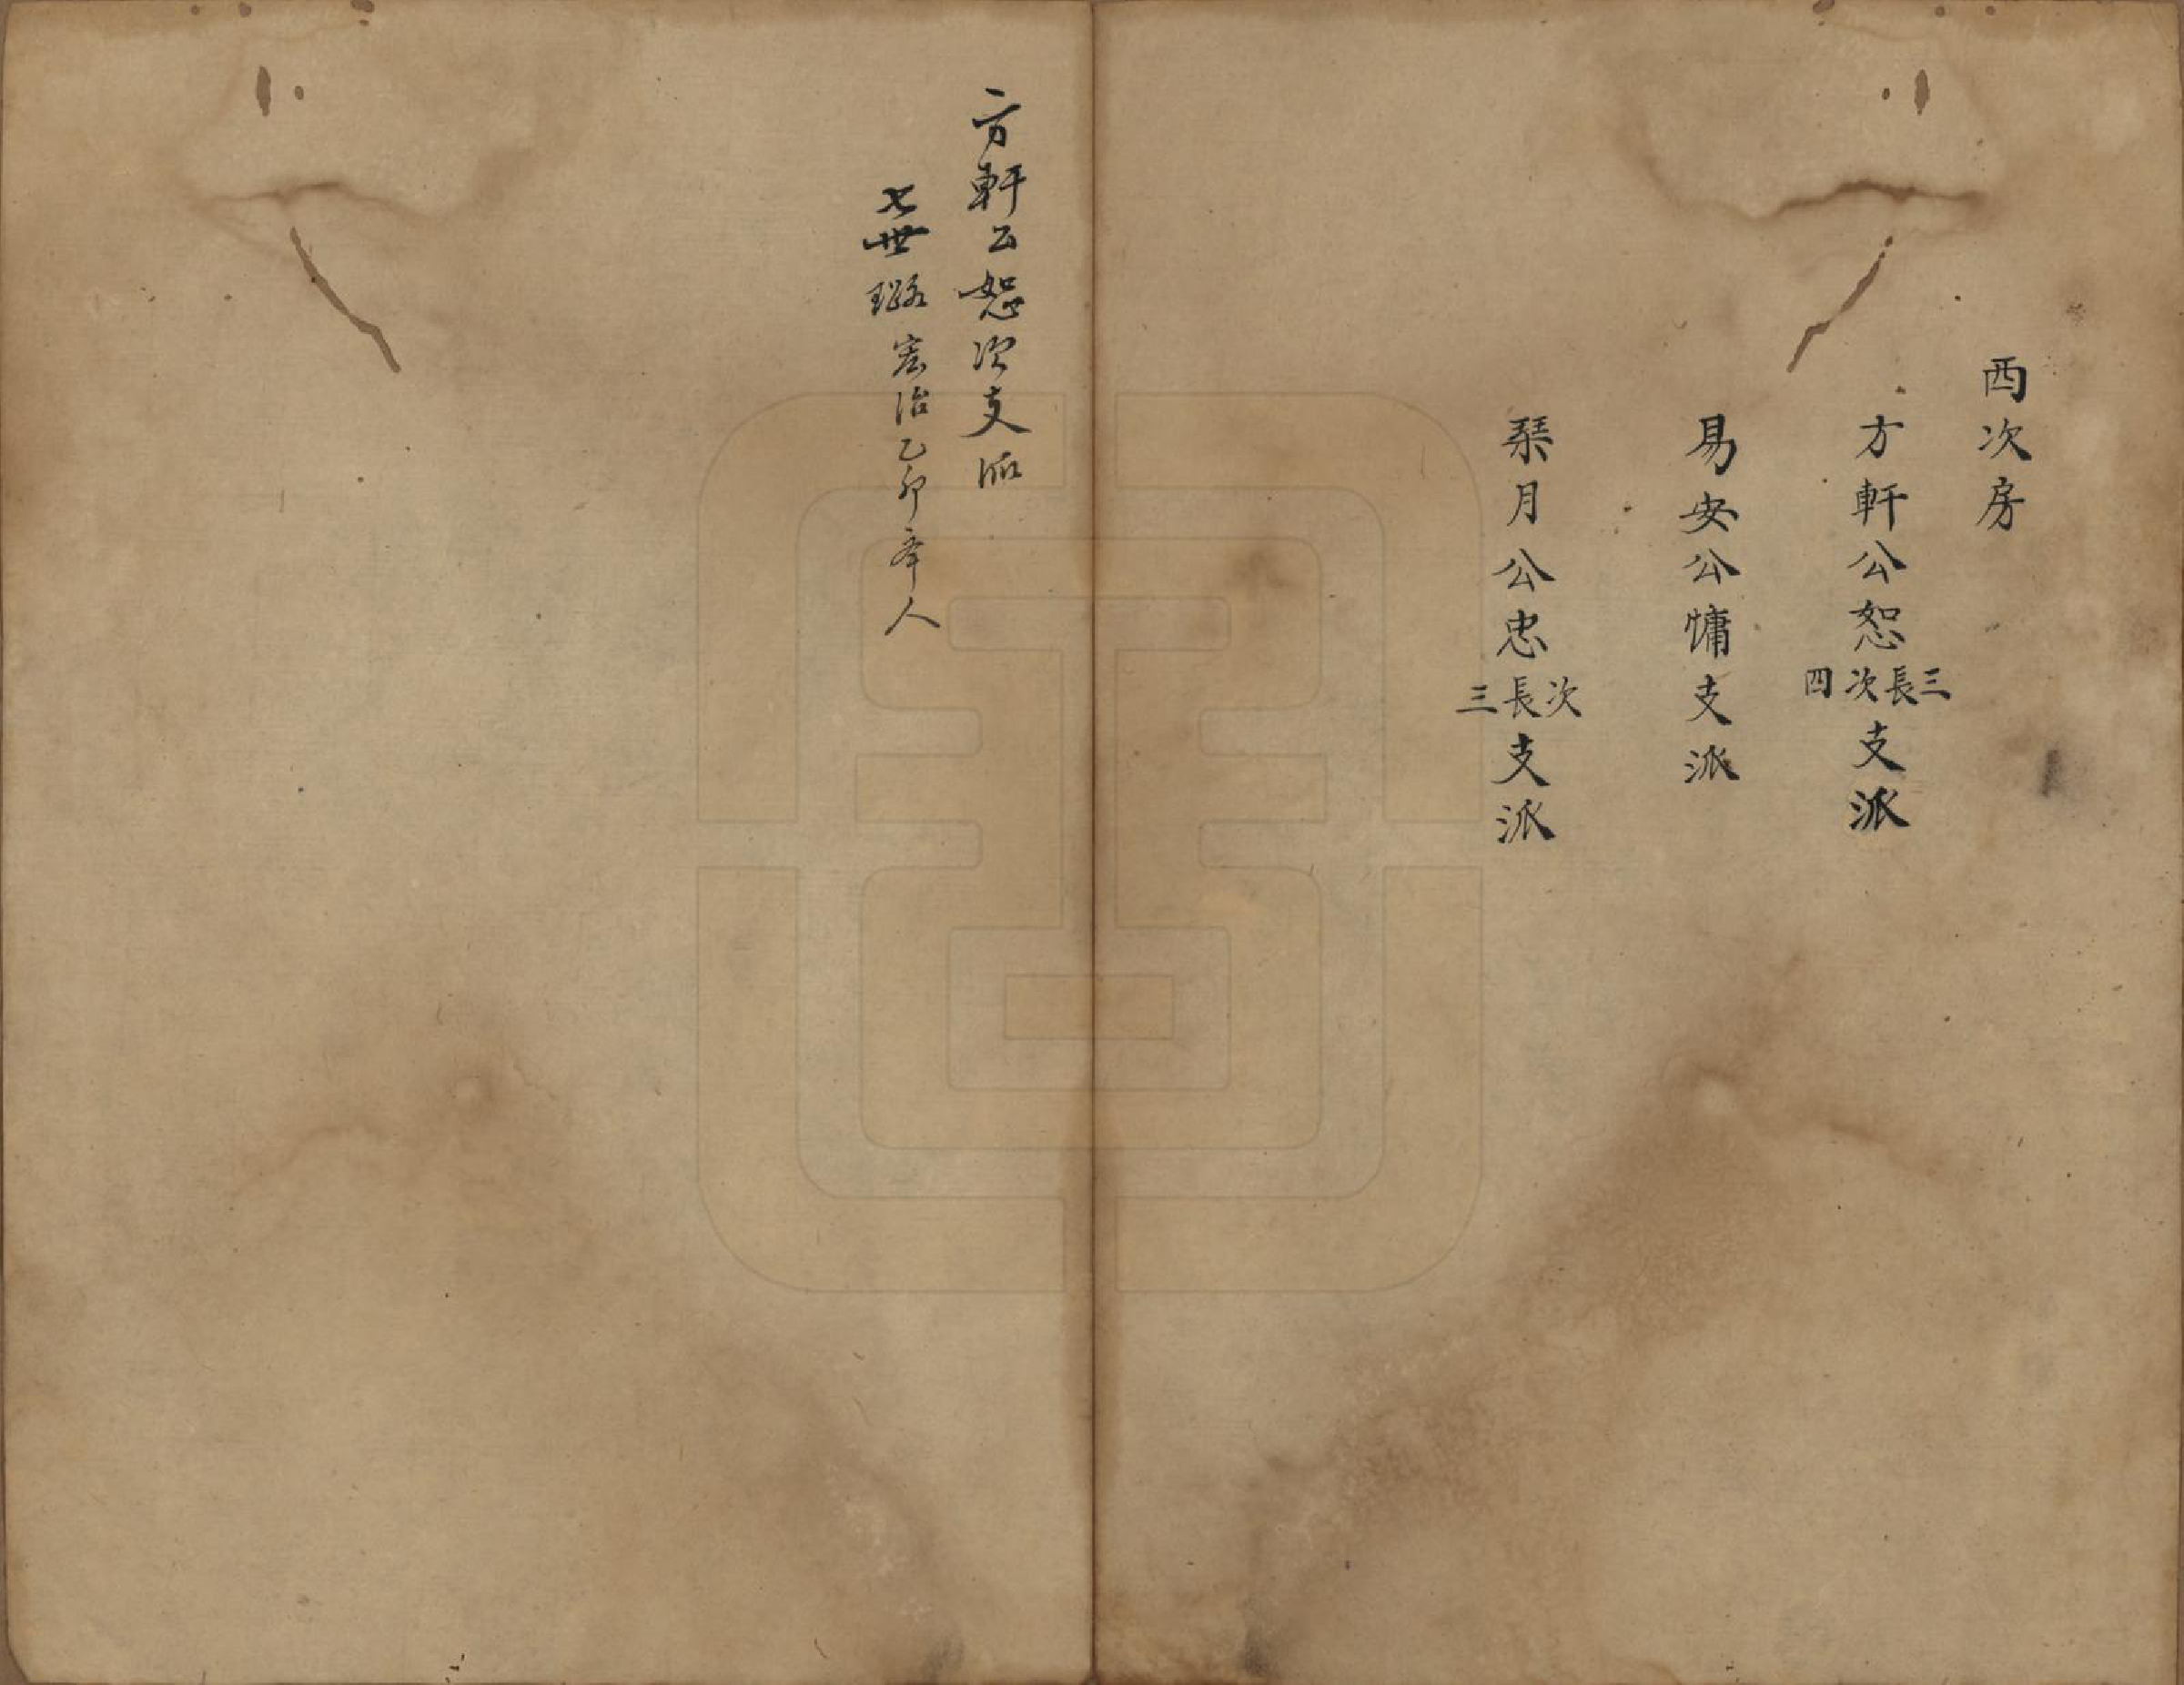 西次房
方軒公恕三長次四支派
易安公慵支派
琹月公忠次長三支派
方軒公恕次支派
七世璐宏治乙卯舉人